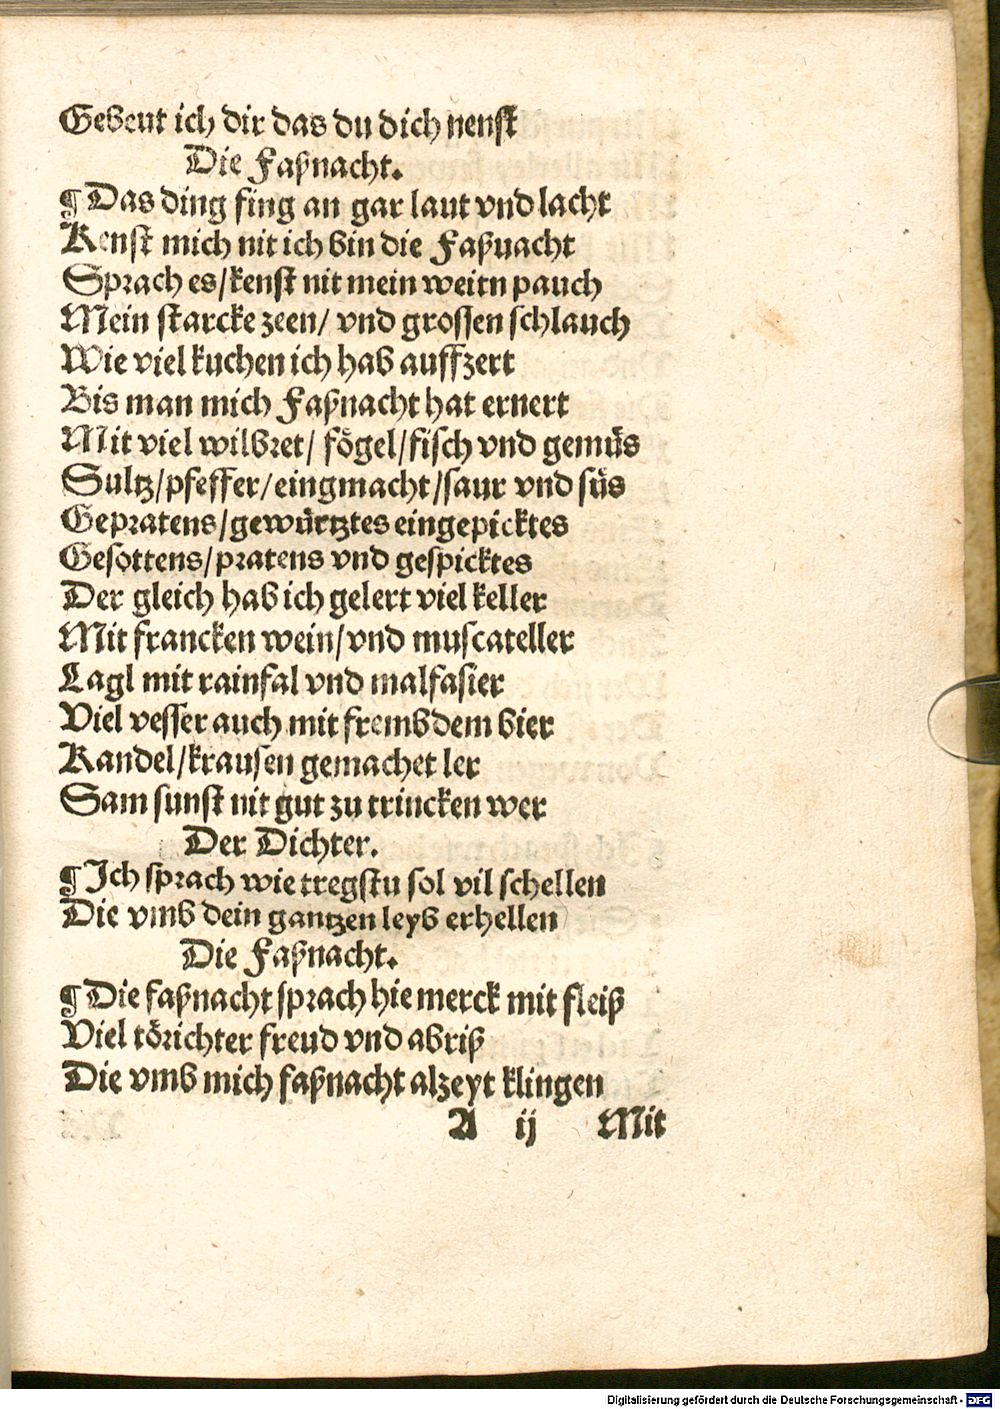 Gebeut ich dir das du dich nenst
Die Faßnacht.
¶ Das ding fing an gar laut vnd lacht
Kenst mich nit ich bin die Faßnacht
Sprach es/kenst nit mein weitn pauch
Mein starcke zeen/ vnd grossen schlauch
Wie viel kuchen ich hab auffzert
Bis man mich Faßnacht hat ernert
Mit viel wilbret/ fögel/fisch vnd gemüs
Sultz/pfeffer/eingmacht/saur vnd süs
Gepratens/gewürtztes eingepicktes
Gesottens/pratens vnd gespicktes
Der gleich hab ich gelert viel keller
Mit francken wein/vnd muscateller
Lagl mit rainfal vnd malfasier
Viel vesser auch mit frembdem bier
Kandel/krausen gemachet ler
Sam sunst nit gut zu trincken wer
Der Dichter.
¶ Ich sprach wie tregstu sol vil schellen
Die vmb dein gantzen leyb erhellen
Die Faßnacht.
¶ Die faßnacht sprach hie merck mit fleiß
Viel törichter freud vnd abriß
Die vmb mich faßnacht alzeyt klingen
A ij Mit
Digitalisierung gefördert durch die Deutsche Forschungsgemeinschaft - DFG